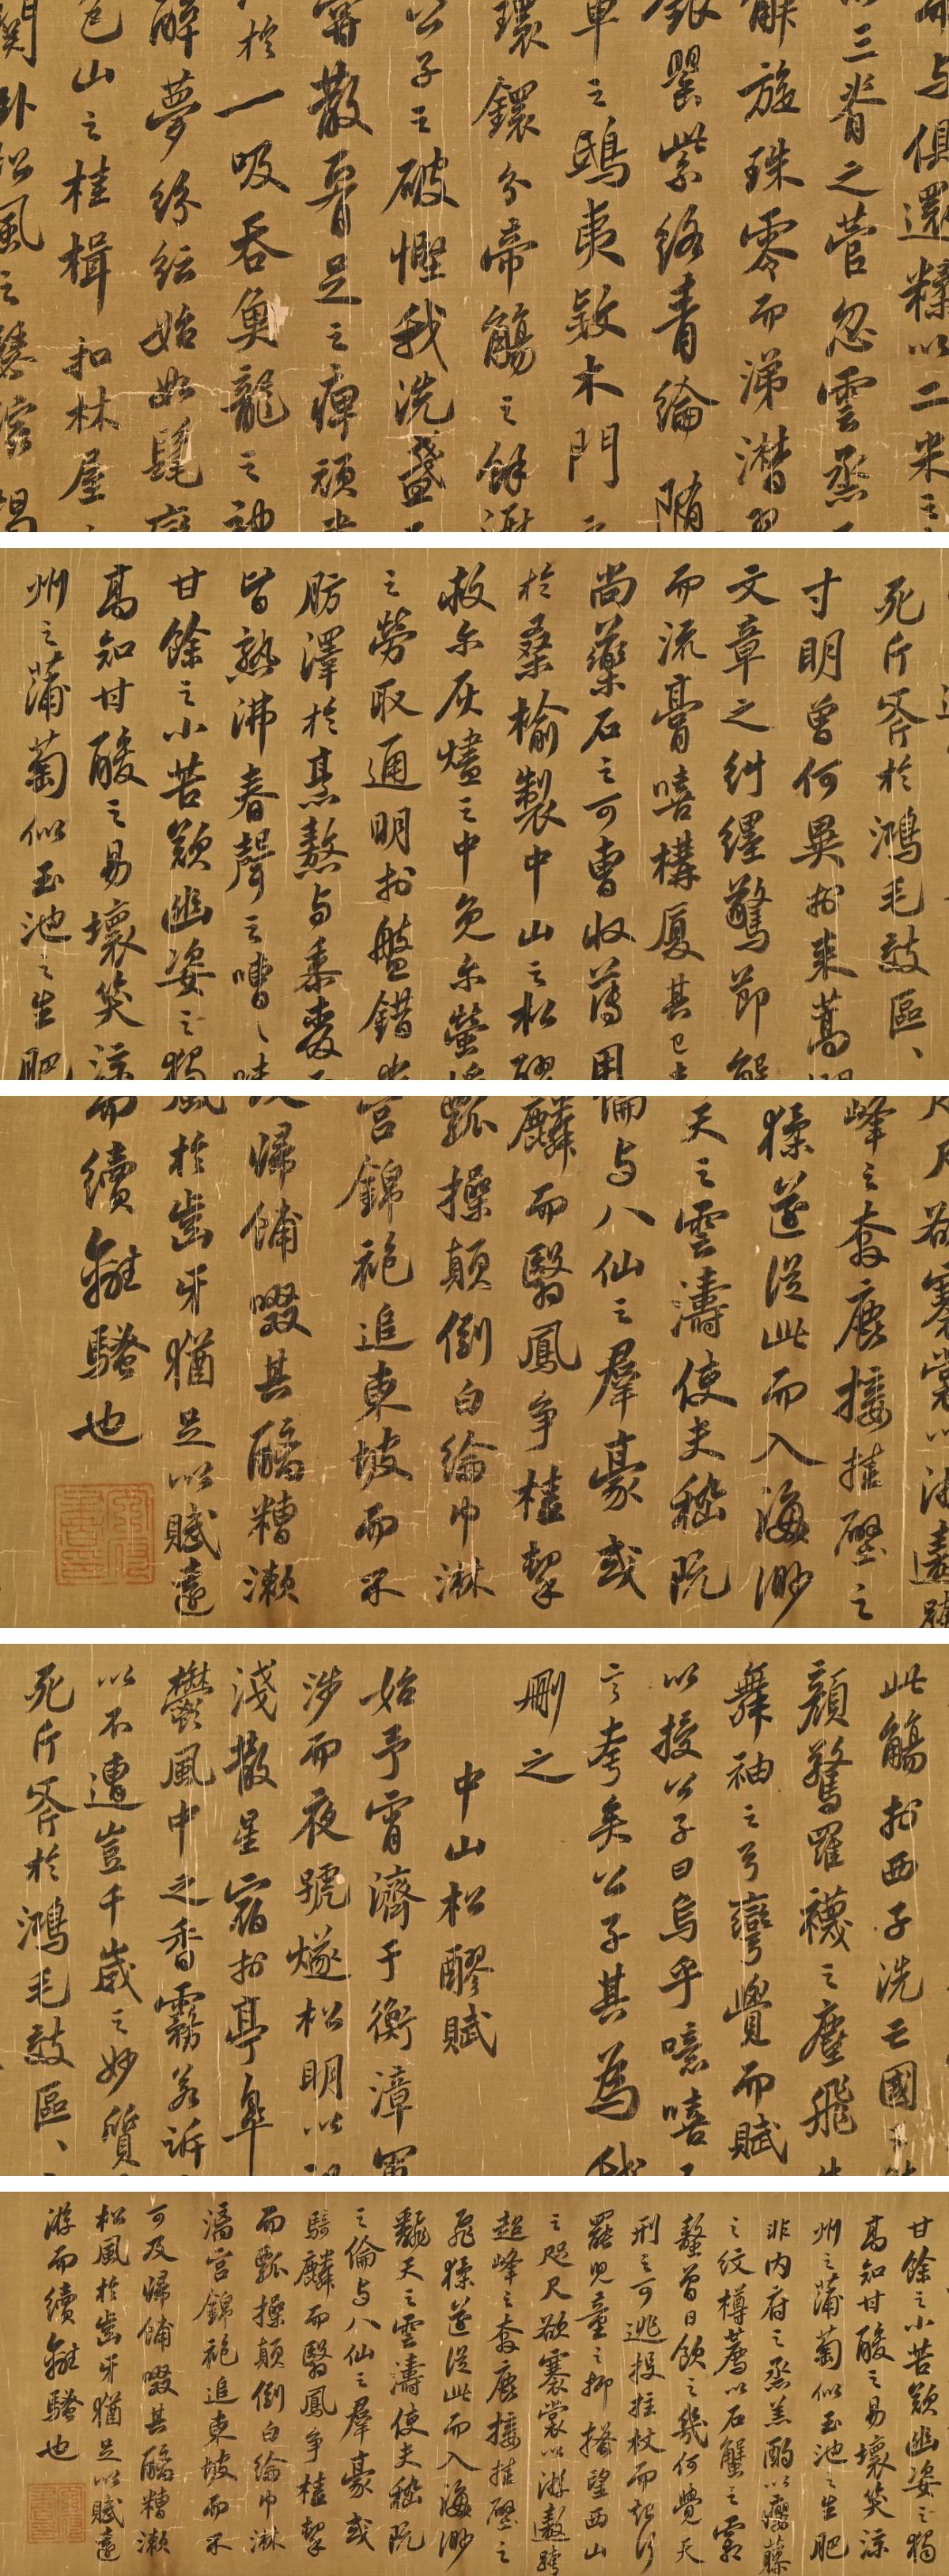 而与俱還糅以二米之
以三脊之菅忽雲烝
解旋珠零而涕潸
銀罌紫絡青綸随
車之鴟夷款木門之
環鐶分帝觴之餘瀝
公子之破慳我洗盞而
嘗散腰足之痺頑盡
於一吸吞魚龍之神
醉夢紛紜始如髦蠻
包山之桂楫扣林屋之
關卧松風之瑟縮揭
死斤斧於鴻毛效區ゝ
寸明曾何異於束蒿爛
文章之糾纏驚節解
而流膏嘻構厦其已遠
尚藥石之可曹收薄用
於桑榆製中山之松醪
救尔灰燼之中免尔螢爝
之勞取通明於盤錯出
肪澤於烹熬与黍麥而
皆熟沸舂聲之嘈ゝ味
甘餘之小苦歎幽姿之獨
高知甘酸之易壞笑涼
州之蒲萄似玉池之生肥
咫尺欲褰裳以游遨跨
峰之奔鹿接挂壁之
猱遂從此而入海渺
天之雲濤使夫嵇阮
倫与八仙之羣豪或
麟而翳鳳爭榼挈
瓢操顛倒白綸巾淋
宮錦袍追東坡而不
及歸餔歠其醨糟漱
風於齒牙猶足以賦遠
而續離騷也
此觴於西子洗亡國之愁
顏驚羅襪之塵飛失
舞袖之弓彎覺而賦
以授公子曰烏乎噫嘻吾
言夸矣公子其為我
刪之
中山松醪賦
始予宵濟于衡漳軍
涉而夜號燧松明以記
淺散星宿於亭皋
鬱風中之香霧若訴
以不遭豈千歲之妙質
死斤斧於鴻毛效區ゝ
甘餘之小苦歎幽姿之獨
高知甘酸之易壞笑涼
州之蒲萄似玉池之生肥
非內府之烝羔酌以癭藤
之紋樽薦以石蟹之霜
螯曾日飲之幾何覺天
刑之可逃投拄杖而起行
罷兒童之抑搔望西山
之咫尺欲褰裳以游遨跨
超峰之奔鹿接挂壁之
飛猱遂從此而入海渺
翻天之雲濤使夫嵇阮
之倫与八仙之羣豪或
騎麟而翳鳳爭榼挈
而瓢操顛倒白綸巾淋
漓宮錦袍追東坡而不
可及歸餔歠其醨糟漱
松風於齒牙猶足以賦遠
游而續離騷也